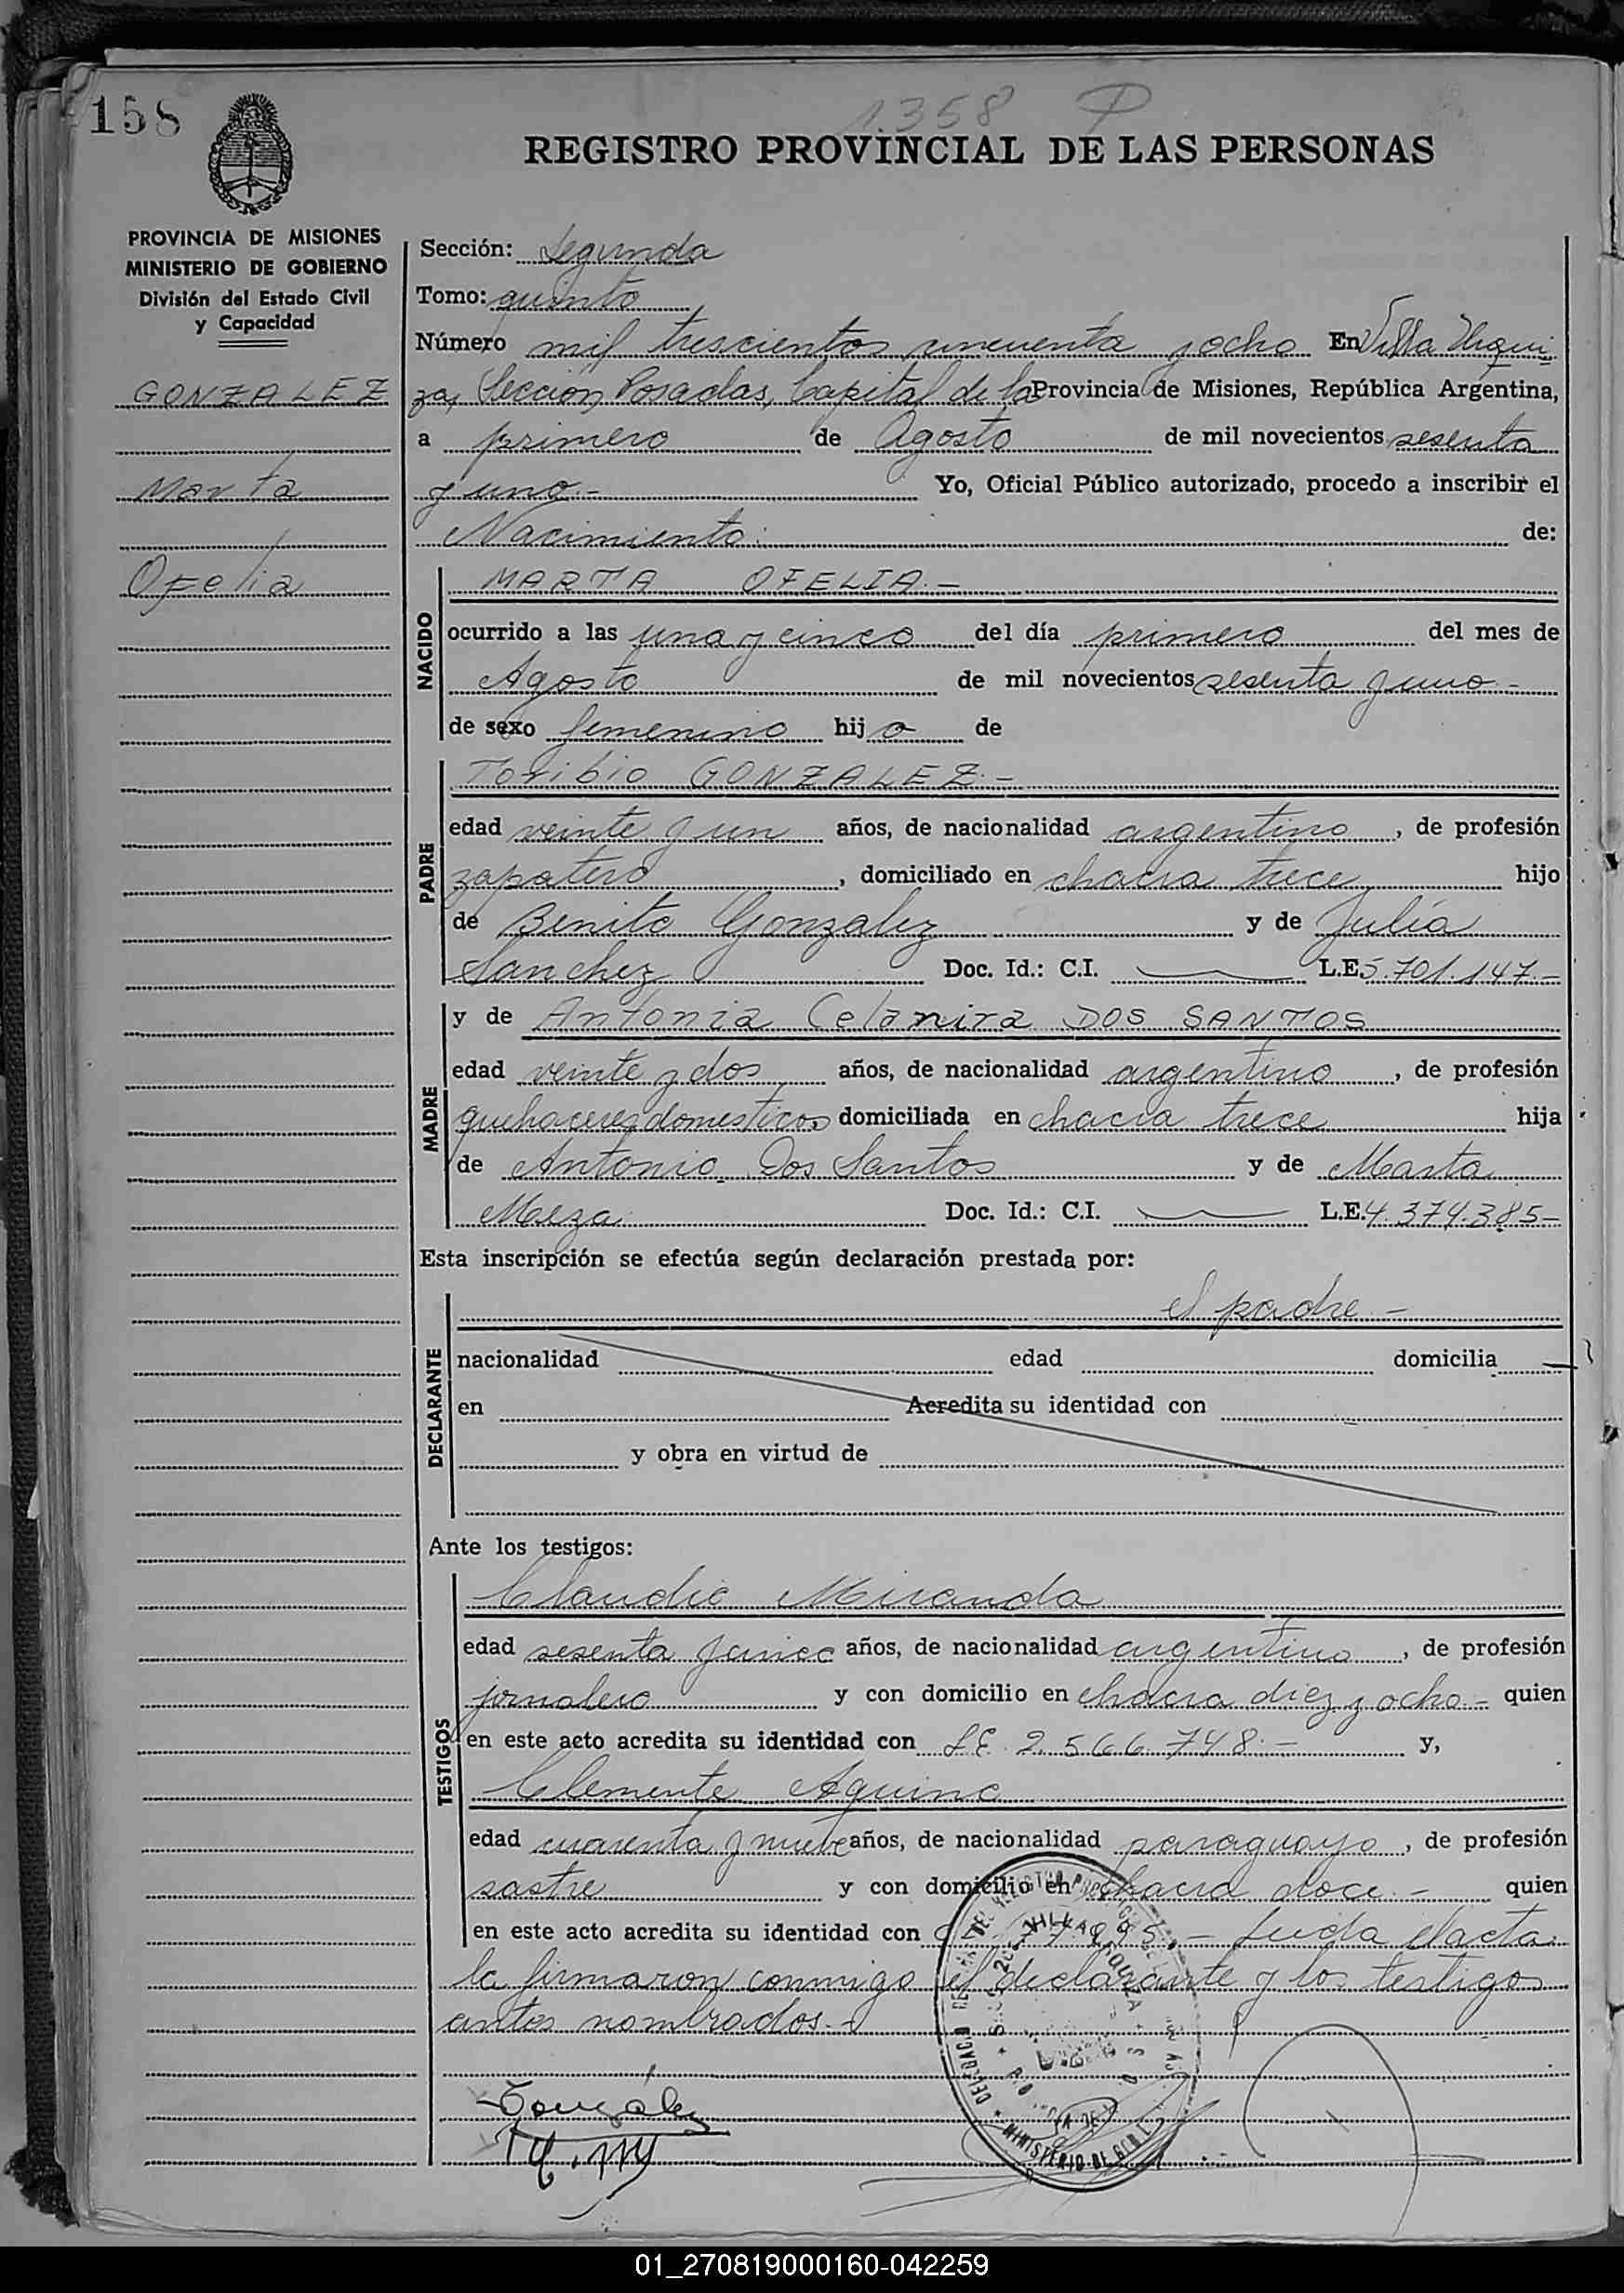 158
1.358
REGISTRO PROVINCIAL DE LAS PERSONAS
PROVINCIA DE MISIONES
MINISTERIO DE GOBIERNO
División del Estado Civil
y Capacidad
GONZALEZ
Marta
Ofelia
Sección: Segunda
Tomo: quinto
Número mil trescientos cincuenta y ocho En Villa Urqui-
za, Sección Posadas, Capital de la Provincia de Misiones, República Argentina,
a primero de Agosto de mil novecientos sesenta
y uno.- Yo, Oficial Público autorizado, procedo a inscribir el
Nacimiento. de:
NACIDO
MARTA OFELIA.-
ocurrido a las una y cinco del día primero del mes de
Agosto de mil novecientos sesenta y uno-
de sexo femenino hija de
PADRE
Toribio GONZALEZ.-
edad veinte y un años, de nacionalidad argentino, de profesión
zapatero, domiciliado en chacra trece hijo
de Benito Gonzalez y de Julia
Sanchez Doc. Id.: C.I. L.E. 5.701.147.-
MADRE
y de Antonia Celanira DOS SANTOS
edad veinte y dos años, de nacionalidad argentina, de profesión
quehaceres domesticos domiciliada en chacra trece hija
de Antonio Dos Santos y de Marta
Meza Doc. Id.: C.I. L.E. 4.374.385-
Esta inscripción se efectúa según declaración prestada por:
DECLARANTE
el padre.-
nacionalidad edad domicilia
en Acredita su identidad con
y obra en virtud de
Ante los testigos:
TESTIGOS
Claudio Miranda
edad sesenta y cinco años, de nacionalidad argentino, de profesión
jornalero y con domicilio en chacra diez y ocho.- quien
en este acto acredita su identidad con LE 2.566.748.- y,
Clemente Aquino
edad cuarenta y nueve años, de nacionalidad paraguayo, de profesión
sastre y con domicilio en chacra doce.- quien
en este acto acredita su identidad con Leida el acta
la firmaron conmigo el declarante y los testigos
antes nombrados.-
Gonzalez
MINISTERIO DE
01_270819000160-042259